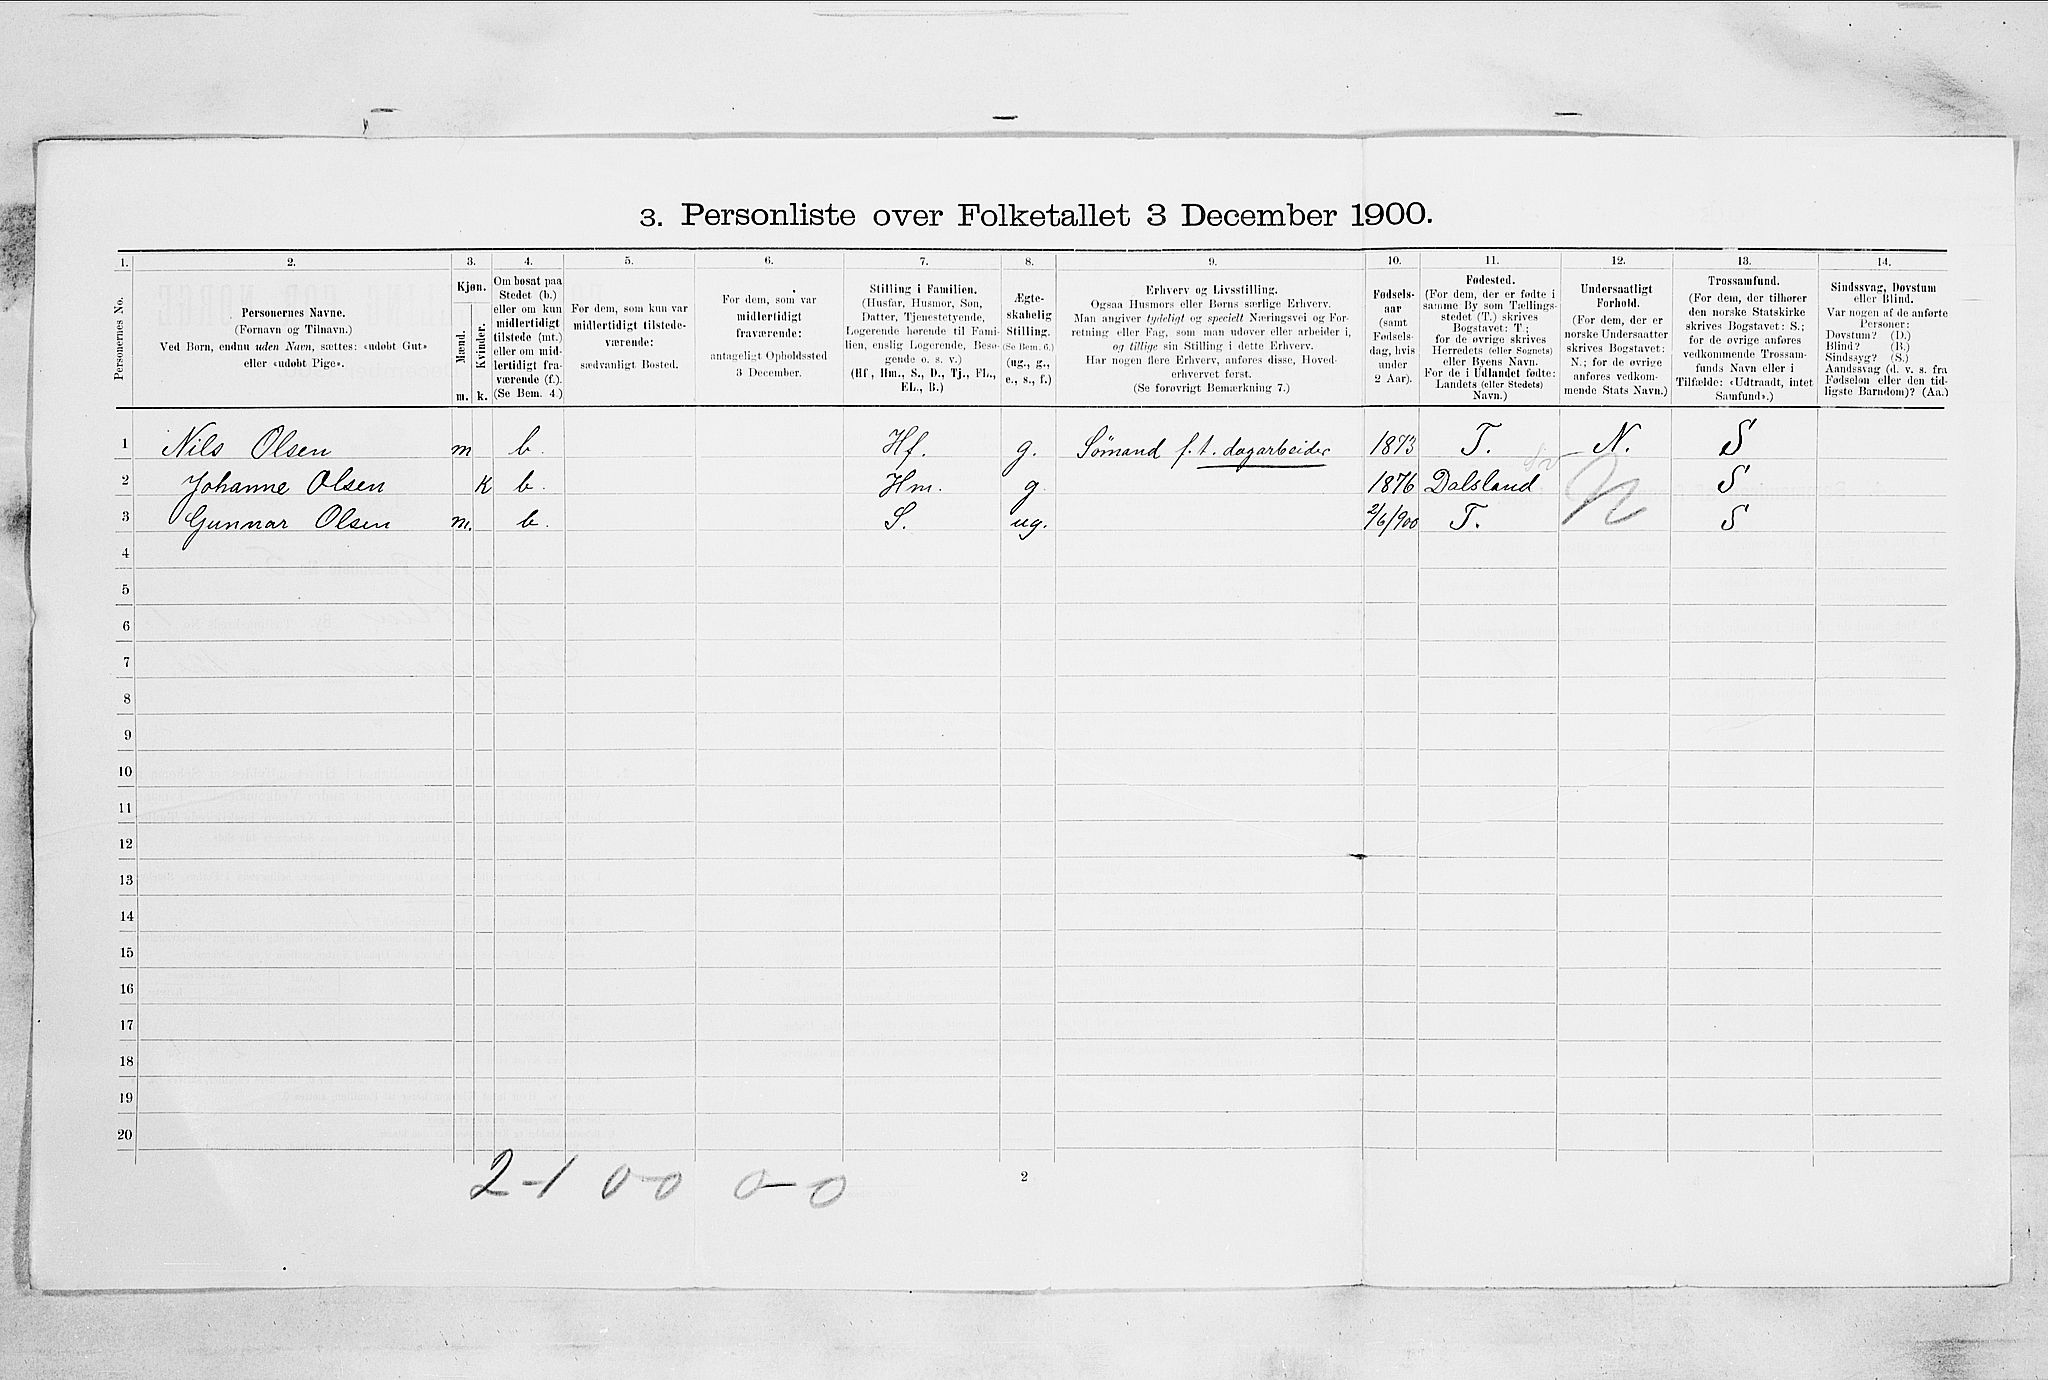 3. Personliste over Folketallet 3 December 1900.
1. 2. 3. 4. 5. 6. 7. 8. 9. 10. 11. 12. 13. 14.
Personernes No.
Personernes Navne.
(Fornavn og Tilnavn.)
Ved Børn, endnu uden Navn, sættes: «udøbt Gut»
eller «udøbt Pige».
Kjøn.
Mænd.
Kvinder.
m. k.
Om bosat paa
Stedet (b.)
eller om kun
midlertidigt
tilstede (mt.)
eller om mid-
lertidigt fra-
værende (f.).
(Se Bem. 4.)
For dem, som kun var
midlertidigt tilstede-
værende:
sædvanligt Bosted.
For dem, som var
midlertidigt
fraværende:
antageligt Opholdssted
3 December.
Stilling i Familien.
(Husfar, Husmor, Søn,
Datter, Tjenestetyende,
Logerende hørende til Fami-
lien, enslig Logerende, Besø-
gende o. s. v.)
(Hf., Hm., S., D., Tj., FL.,
EL., B.)
Ægte-
skabelig
Stilling.
(Se Bem. 6.)
(ug., g.,
e., s., f.)
Erhverv og Livsstilling.
Ogsaa Husmors eller Børns særlige Erhverv.
Man angiver tydeligt og specielt Næringsvei og For-
retning eller Fag, som man udøver eller arbeider i,
og tillige sin Stilling i dette Erhverv.
Har nogen flere Erhverv, anføres disse, Hoved-
erhvervet først.
(Se forøvrigt Bemærkning 7.)
Fødsels-
aar
(samt
Fødsels-
dag, hvis
under
2 Aar).
Fødested.
(For dem, der er fødte i
samme By som Tællings-
stedet (T.) skrives
Bogstavet: T.;
for de øvrige skrives
Herredets (eller Sognets)
eller Byens Navn.
For de i Udlandet fødte:
Landets (eller Stedets)
Navn.)
Undersaatligt
Forhold.
(For dem, der er
norske Undersaatter
skrives Bogstavet:
N.; for de øvrige
anføres vedkom-
mende Stats Navn.)
Trossamfund.
(For dem, der tilhører
den norske Statskirke
skrives Bogstavet: S.;
for de øvrige anføres
vedkommende Trossam-
funds Navn eller i
Tilfælde: «Udtraadt, intet
Samfund».)
Sindssvag, Døvstum
eller Blind.
Var nogen af de anførte
Personer:
Døvstum? (D.)
Blind? (B.)
Sindssyg? (S.)
Aandssvag (d. v. s. fra
Fødselen eller den tid-
ligste Barndom)? (Aa.)
1 Nils Olsen m b. Hf. g. Sømand f. t. dagarbeider 1873 T. N. S
2 Johanne Olsen K b. Hm. g 1876 Dalsland N S
3 Gunnar Olsen m. b. S. ug. 2/6/900 T. S
4
5
6
7
8
9
10
11
12
13
14
15
16
17
18
19
20
2-1 0-0 0-0
2